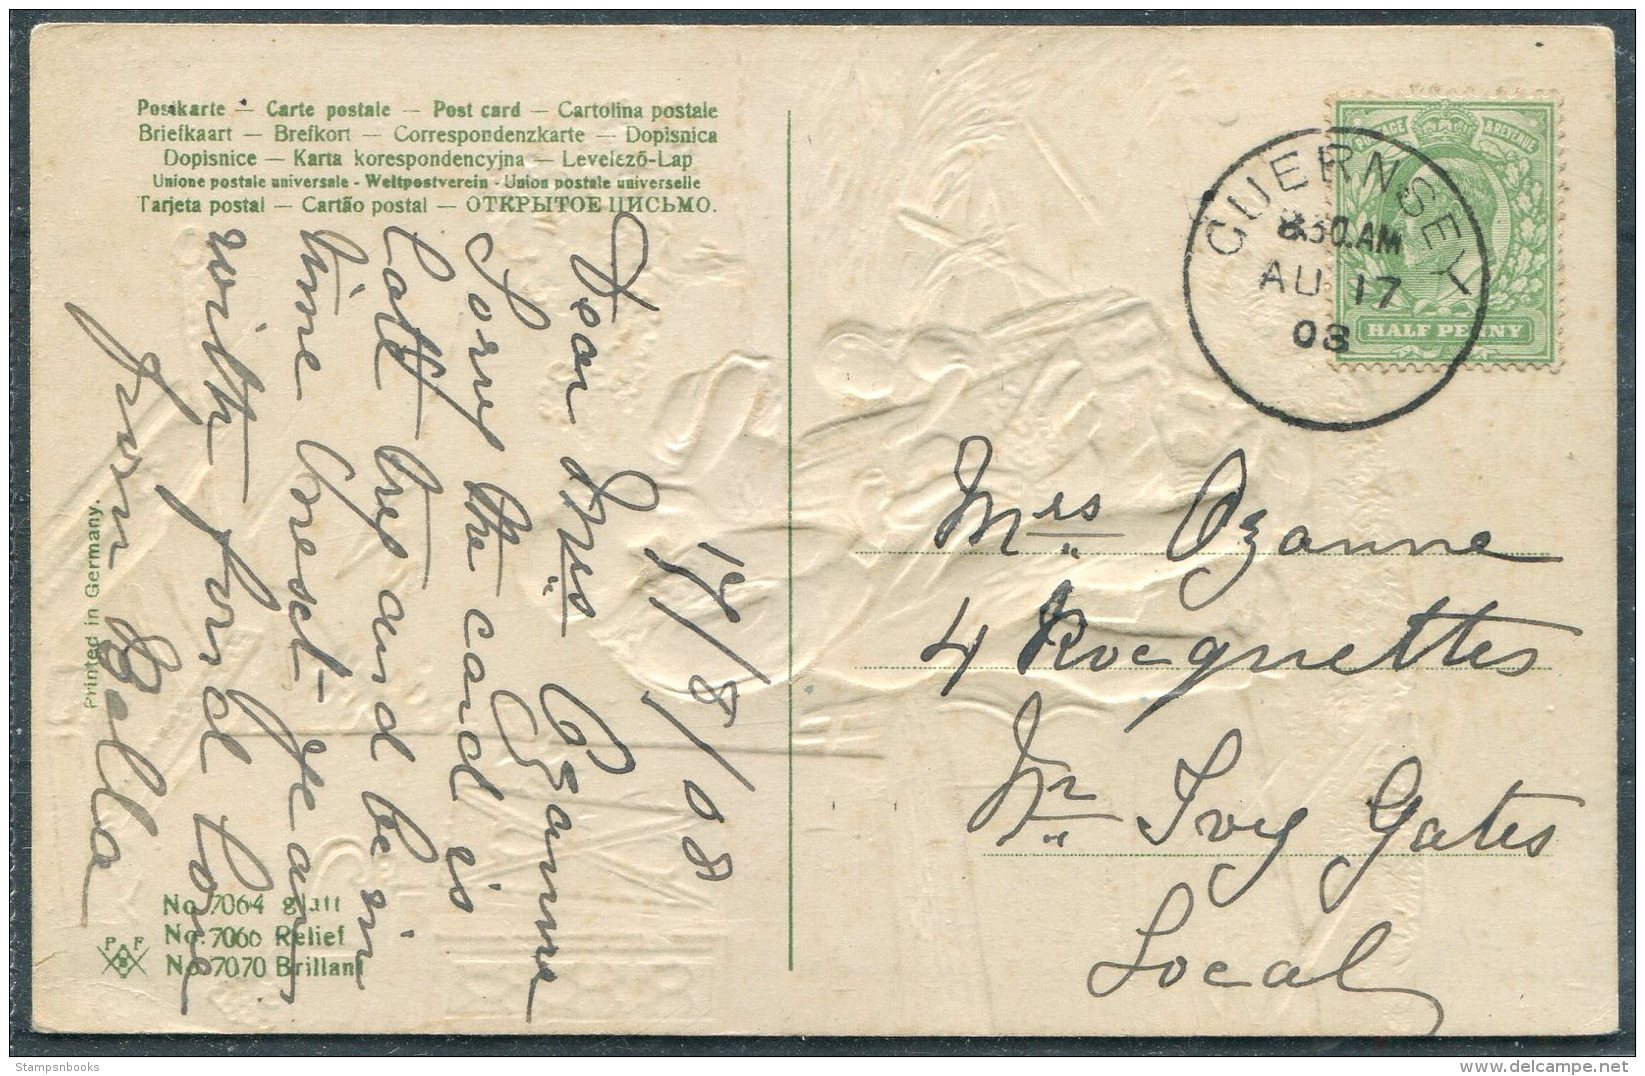 Postkarte — Carte postale — Post card — Cartolina postale
Briefkaart — Brefkort — Correspondenzkarte — Dopisnica
Dopisnice — Karta korespondencyjna — Levelező-Lap
Unione postale universale - Weltpostverein - Union postale universelle
Tarjeta postal — Cartão postal — ОТКРЫТОЕ ПИСЬМО.
17/8/08
Dear Mrs Ozanne
Sorry the card is
late try and be in
time
with fond love
from Bella
Printed in Germany.
No. 7064 glatt
No. 7066 Relief
No. 7070 Brillant
P F
B
POSTAGE & REVENUE
HALF PENNY
GUERNSEY
8.30.AM
AU 17
08
Mrs Ozanne
4 Rocquettes
Nr Ivy Gates
Local
Stampsnbooks
www.delcampe.net